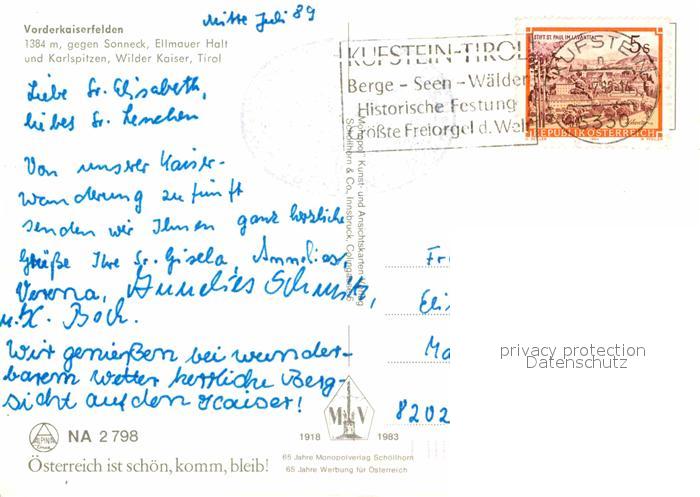 Mitte Juli 89
Vorderkaiserfelden
1384 m, gegen Sonneck, Ellmauer Halt
und Karlspitzen, Wilder Kaiser, Tirol
Liebe Sr. Elisabeth,
liebes Sr. Lenchen
Von unserer Kaiser-
wanderung zu fünft
senden wir Ihnen ganz herzliche
Grüße Ihre Sr. Gisela, Annelies
Verena, Annelies
u. X. Bock.
Wir genießen bei wunder-
barem Wetter herrliche Berg-
sicht auf den Kaiser!
ALPINA
NA 2798
Österreich ist schön, komm, bleib!
KUFSTEIN-TIROL
Berge - Seen - Wälder
Historische Festung
größte Freiorgel d. Welt
STIFT ST. PAUL IM LAVANTTAL
5s
REPUBLIK ÖSTERREICH
KUFSTEIN
6330
Monopol Kunst- und Ansichtskarten-Verlag
Schöllhorn & Co., Innsbruck,
Fr
Elis
Ma
8202
privacy protection
Datenschutz
M V
1918 1983
65 Jahre Monopolverlag Schöllhorn
65 Jahre Werbung für Österreich